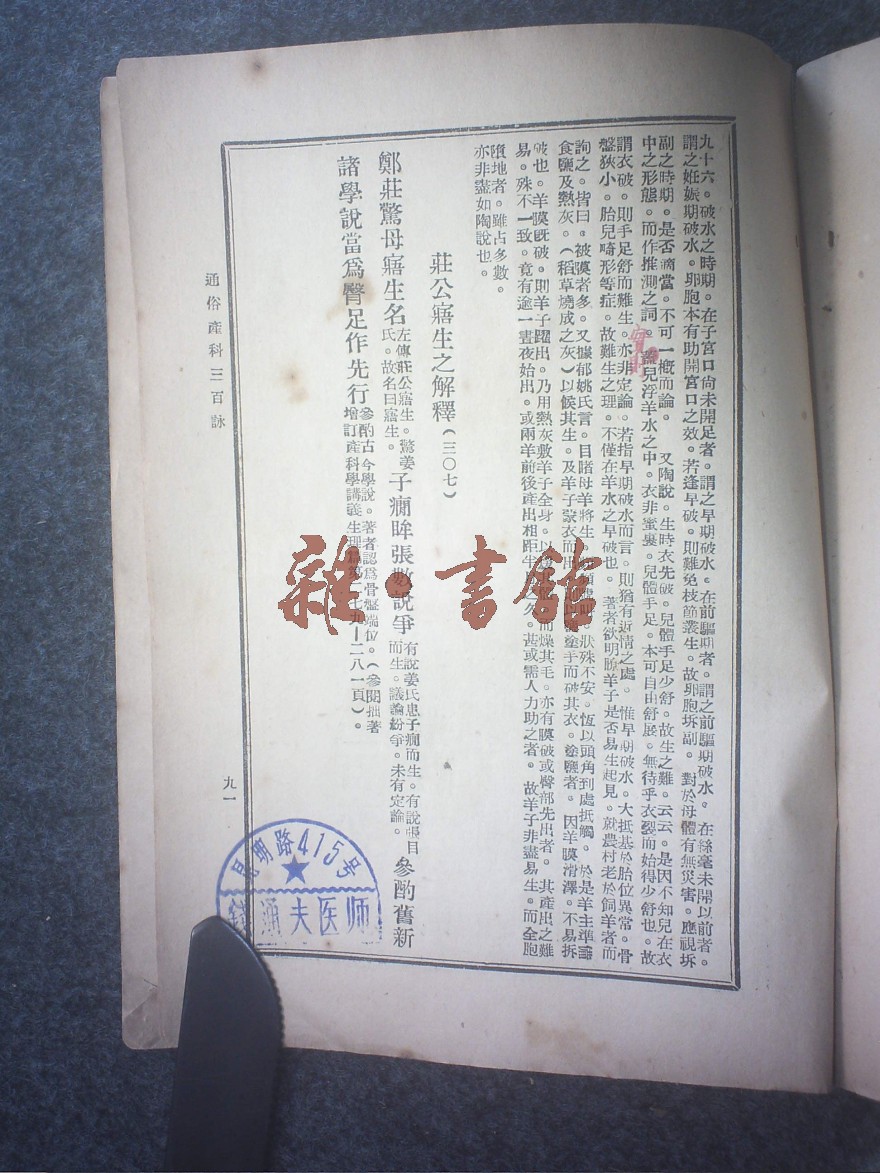 九十六。破水之時期。在子宮口尙未開足者。謂之早期破水。在前驅期者。謂之前驅期破水。在絲毫未開以前者。
謂之妊娠期破水。卵胞本有助開宮口之效。若逢早破。則難免枝節叢生。故卵胞坼副。對於母體有無災害。應視坼
副之時期。是否適當。不可一槪而論。　又陶說。生時衣先破。兒體手足少舒。故生之難。云云。是因不知兒在衣
中之形態。而作推測之詞。蓋兒浮羊水之中。衣非蜜裹。兒體手足。本可自由舒展。無待乎衣裂而始得少舒也。故
謂衣破。則手足舒而難生。亦非定論。若指早期破水而言。則猶有近情之處。惟早期破水。大抵基於胎位異常。骨
盤狹小。胎兒畸形等症。故難生之理。不僅在羊水之早破也。　著者欲明瞭羊子是否易生起見。就農村老於飼羊者而
詢之。皆曰。被膜者多。又據郁姚氏言。目睹母羊將生　狀殊不安。恆以頭角到處抵觸。於是羊主準備
食鹽及熱灰。（稻草燒成之灰）以候其生。及羊子蒙衣而　塗手而破其衣。塗鹽者。因羊膜滑澤。不易拆
破也。羊膜旣破。則羊子躍出。乃用熱灰敷羊子全身。以　而燥其毛。亦有膜破或臀部先出者。其產出之難
易。殊不一致。竟有逾一晝夜始出。或兩羊前後產出相距半　之久。甚或需人力助之者。故羊子非盡易生。而全胞
墮地者。雖占多數。
亦非盡如陶說也。
莊公寤生之解釋（三〇七）
鄭莊驚母寤生名 左傳莊公寤生。驚姜氏。故名曰寤生。 子癇眸張數說爭 有說姜氏患子癇而生。有說張目而生。議論紛爭。未有定論。 參酌舊新
諸學說當爲臀足作先行 參酌古今學說。著者認爲骨盤端位。（參閱拙著增訂產科學講義生理篇第二七九—二八一頁）。
通俗產科三百詠
九一
雜·書館
昆明路415号
錢通夫医师